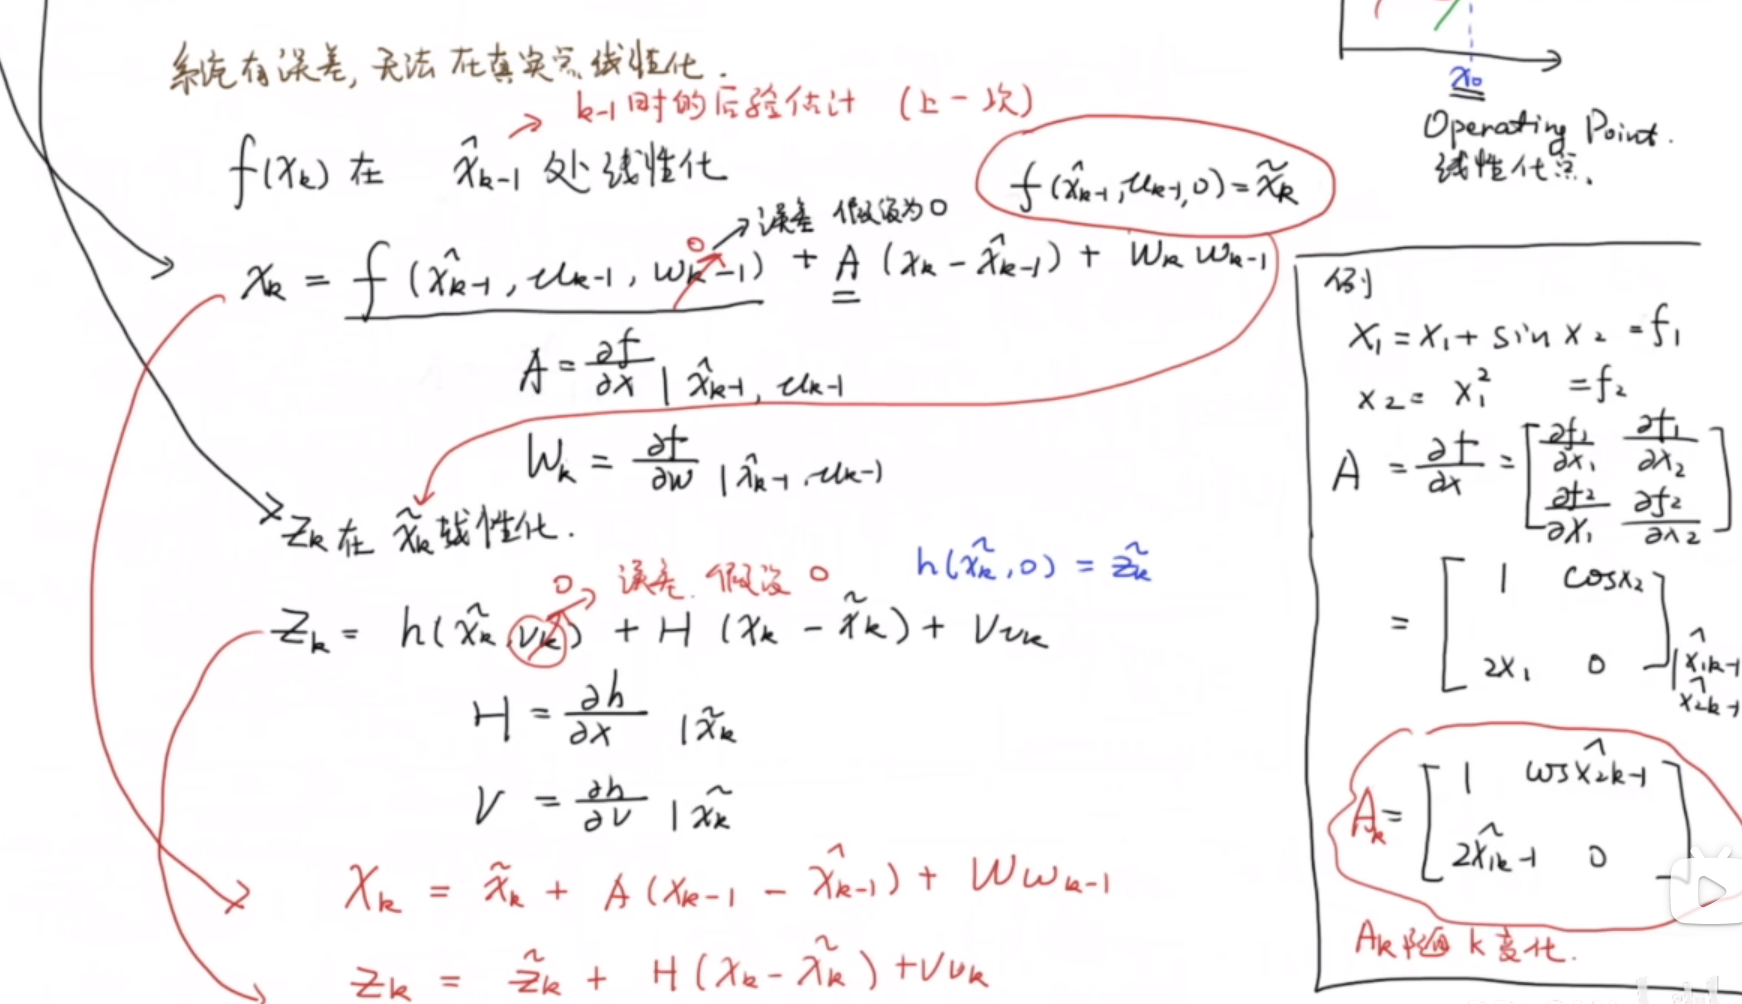 系统有误差,无法在真实点线性化.
k-1时的后验估计 (上一次)
f(x_k) 在 x̂_{k-1} 处线性化
f(x̂_{k-1}, u_{k-1}, 0) = x̃_k
0 误差 假设为0
x_k = f(x̂_{k-1}, u_{k-1}, w_{k-1}) + A(x_k - x̂_{k-1}) + W_k w_{k-1}
A = ∂f/∂x | x̂_{k-1}, u_{k-1}
W_k = ∂f/∂w | x̂_{k-1}, u_{k-1}
z_k 在 x̃_k 线性化.
0 误差. 假设 0
h(x̃_k, 0) = z̃_k
z_k = h(x̃_k, v_k) + H(x_k - x̃_k) + V v_k
H = ∂h/∂x | x̃_k
V = ∂h/∂v | x̃_k
x_k = x̃_k + A(x_{k-1} - x̂_{k-1}) + W w_{k-1}
z_k = z̃_k + H(x_k - x̃_k) + V v_k
x_0
Operating Point.
线性化点.
例
x_1 = x_1 + sin x_2 = f_1
x_2 = x_1^2 = f_2
A = ∂f/∂x = [∂f_1/∂x_1 ∂f_1/∂x_2
∂f_2/∂x_1 ∂f_2/∂x_2]
= [1 cosx_2
2x_1 0] | x̂_{1k-1}
x̂_{2k-1}
A_k = [1 cosx̂_{2k-1}
2x̂_{1k-1} 0]
A_k 随 k 变化.